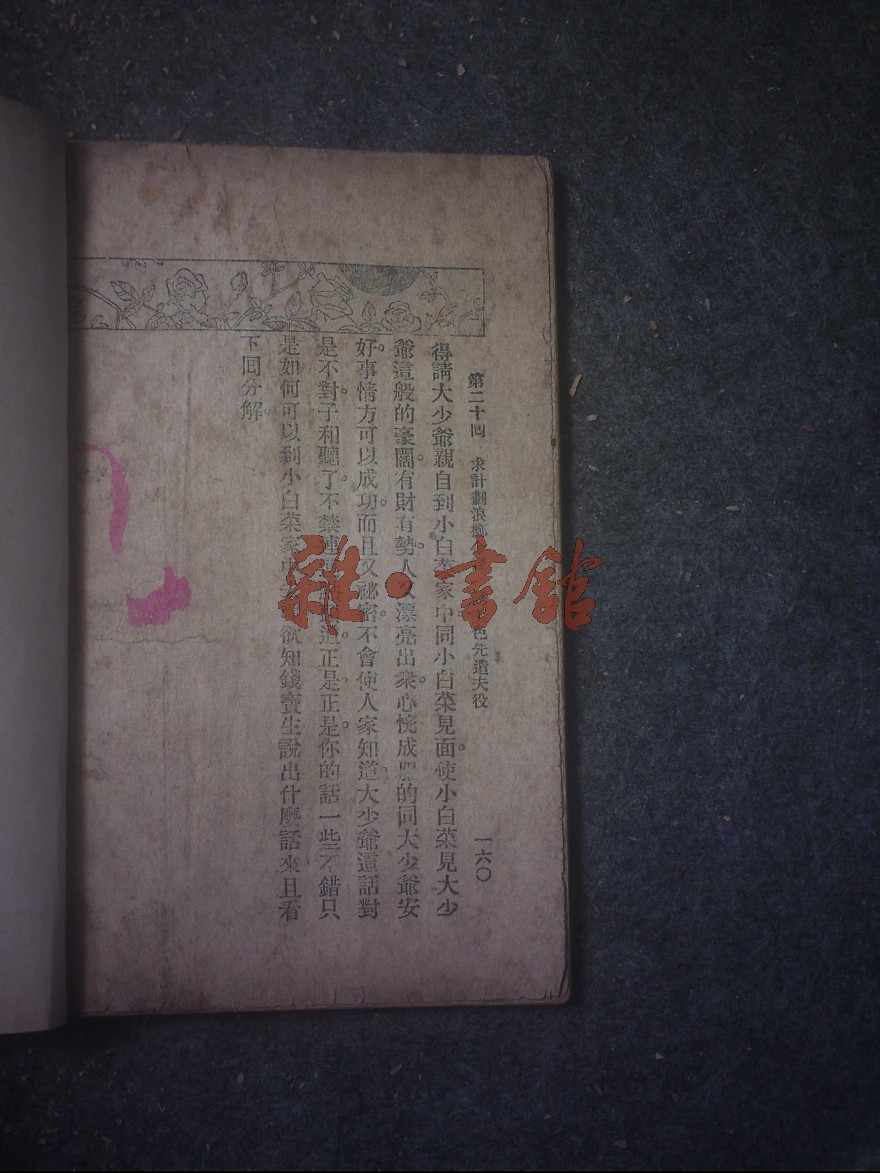 第二十回　求計劃浪擲　色先遣夫役
一六〇
得請大少爺親自到小白菜家中同小白菜見面。使小白菜見大少
爺這般的豪闊。有財有勢。人又漂亮出衆。心悅成服的同大少爺安
好。事情方可以成功。而且又祕密。不會使人家知道。大少爺這話對
是不對。子和聽了。不禁連　道。正是正是。你的話一些不錯。只
是如何可以到小白菜家中　欲知錢寶生說出什麽話來。且看
下回分解。
雜·書館